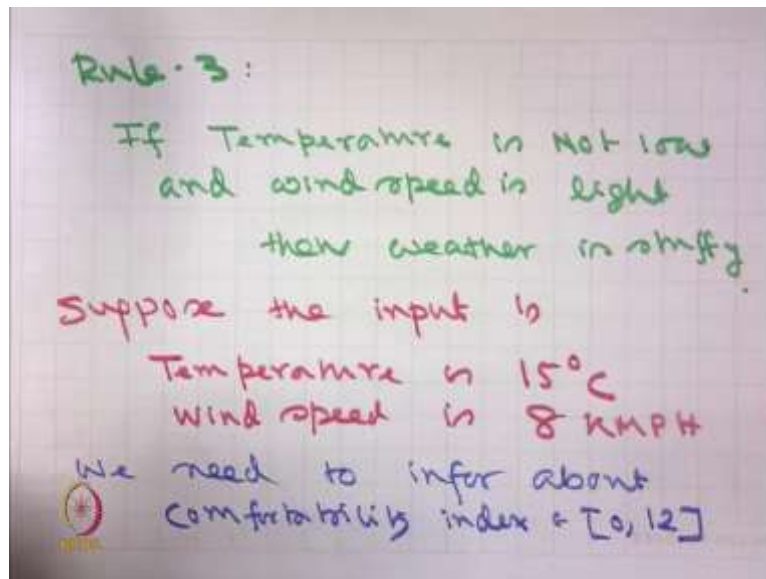 Rule. 3:
If Temperature is Not low
and wind speed is light
then weather is stuffy.
Suppose the input is
Temperature is 15°C
wind speed is 8 KMPH
We need to infer about
Comfortability index ∈ [0, 12]